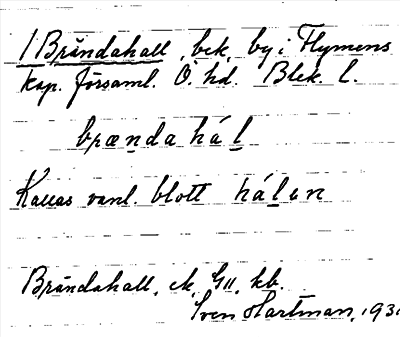 1 Brändahall, bek. by i Flymens
kap. församl. Ö. hd. Blek. l.
brænda hál
Kallas vanl. blott hálen
Brändahall, ek. G11, kb.
Sven Hartman, 193